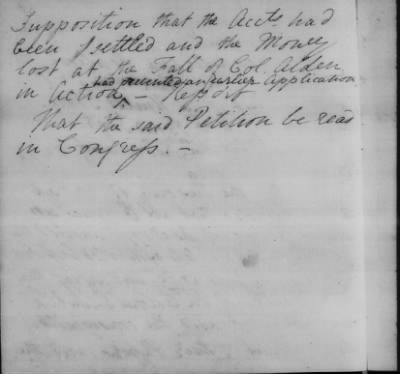 Supposition that the Accts had
been settled and the Money
lost at the Fall of Col Alden
in Action, had prevented an earlier application
— Report
That the said Petition be read
in Congress. —